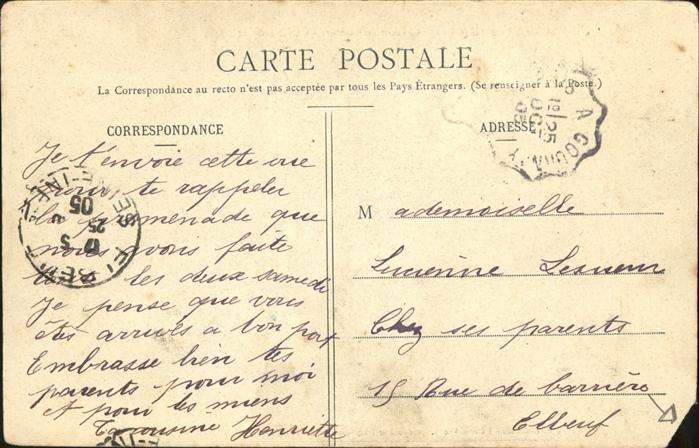 CARTE POSTALE
La Correspondance au recto n'est pas acceptée par tous les Pays Étrangers. (Se renseigner à la Poste.)
CORRESPONDANCE
Je t'envoie cette vue
pour te rappeler
la promenade que
nous avons faite
les deux samedi
Je pense que vous
êtes arrivés a bon port
Embrasse bien tes
parents pour moi
et pour les miens
Ta cousine Henriette
ADRESSE
Mademoiselle
Lucienne Lesueur
Chez ses parents
15 Rue de barrière
Elbeuf
A GOURN
25
05
17 5
25
05